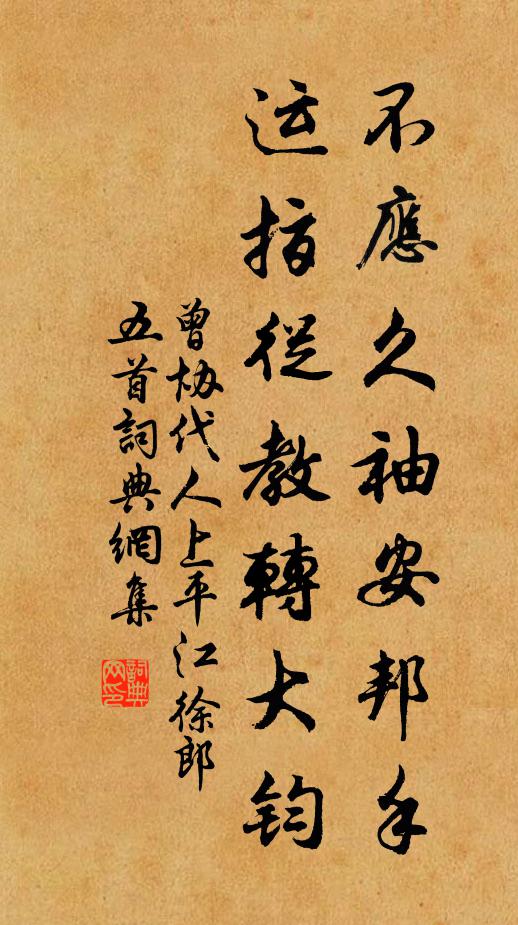 不應久袖安邦手
运指從教轉大鈞
曾协代人上平江徐郎
五首詞典網集
詞典
网印